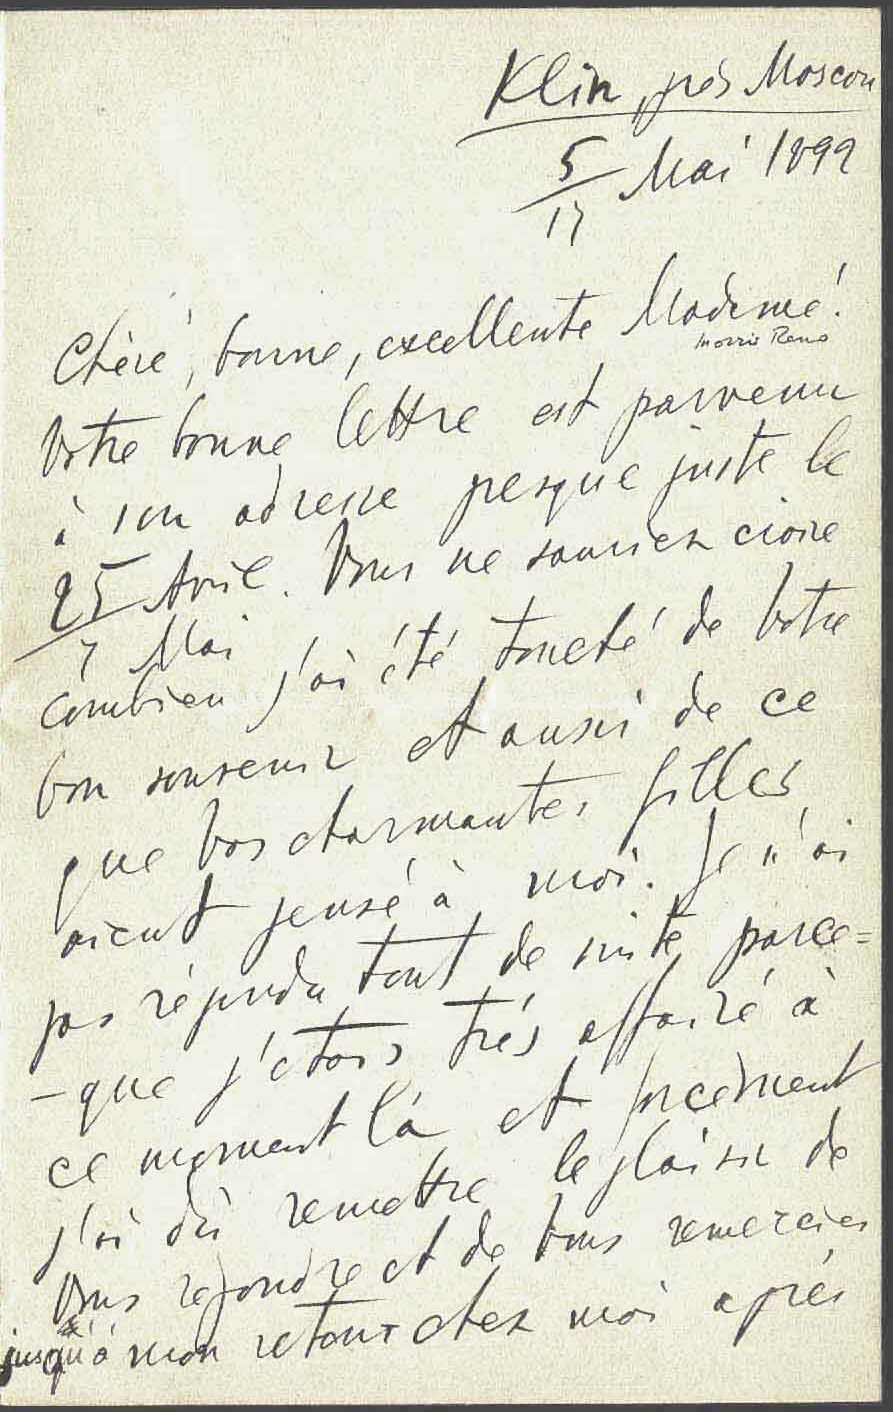 Klin, près Moscou
5/17 Mai 1892
Chère, bonne, excellente Madame!
Morris Reno
Votre bonne lettre est parvenu
à son adresse presque juste le
25 Avril. Vous ne sauriez croire
7 Mai
combien j'ai été touché de Votre
bon souvenir et aussi de ce
que Vos charmantes filles
aient pensé à moi. Je n'ai
pas répondu tout de suite parce=
-que j'étais très affairé à
ce moment là et forcément
j'ai dû remettre le plaisir de
Vous répondre et de Vous remercier
jusqu'à mon retour chez moi après